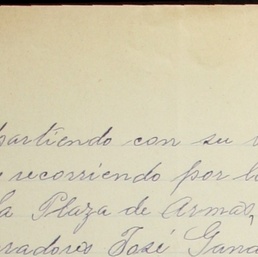 partiendo con su
recorriendo por l
la Plaza de Armas,
radores José Gana